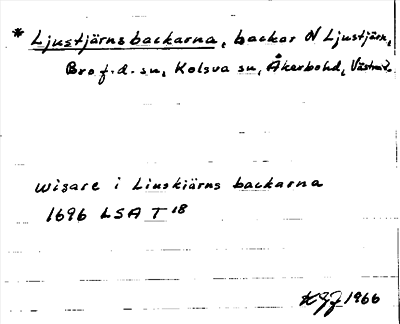 * Ljustjärnsbackarna, backar N Ljustjärn,
Bro f.d. sn, Kolsva sn, Åkerbohd, Västml.
Wisare i Liuskiärns backarna
1696 LSA T 18
1966